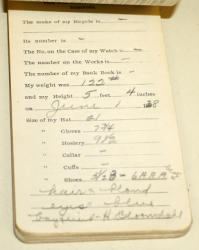 The make of my Bicycle is –
Its number is –
The No. on the Case of my Watch –
The number on the Works is –
The number of my Bank Book is –
My weight was 122
and my Height 5 feet 4 inches
on June 1 1938
Size of my Hat 21
" Gloves 7 3/4
" Hosiery 9 1/2
" Collar –
" Cuffs –
" Shoes
hair = blond
eyes blue